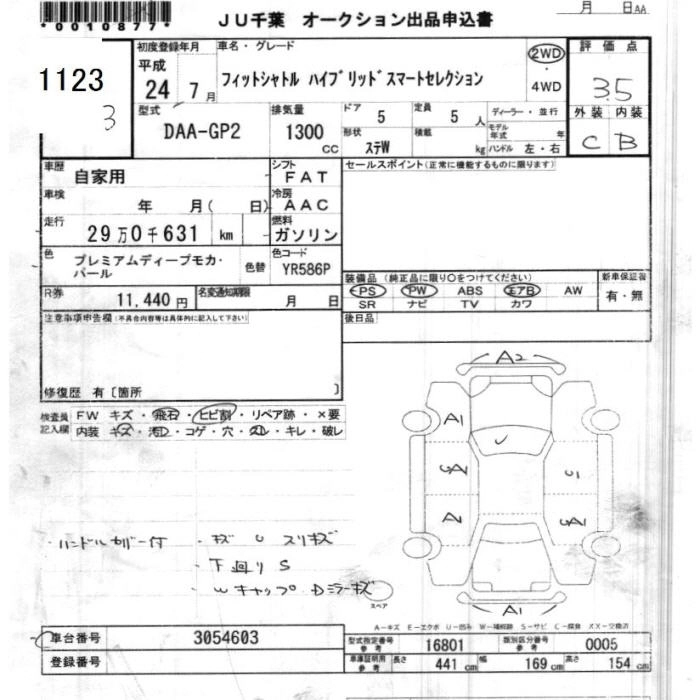 *0010877*
JU千葉 オークション出品申込書
月 日 AA
1123
3
初度登録年月
平成
24 7月
車名・グレード
フィットシャトル ハイブリッドスマートセレクション
2WD
・
4WD
評価点
3.5
外装 内装
C B
型式
DAA-GP2
排気量
1300
CC
ドア
5
定員
5 人
ディーラー・並行
モデル年式 年
形状
ステW
積載
kg
ハンドル 左・右
車歴
自家用
シフト
FAT
セールスポイント(正常に機能するものに限ります)
車検
年 月( 日)
冷房
AAC
走行
29万0千631 km
燃料
ガソリン
色
プレミアムディープモカ・パール
色替
色コード
YR586P
装備品(純正品に限り○をつけてください)
PS PW ABS エアB AW
SR ナビ TV カワ
新車保証書
有・無
R券
11,440円
名変通知期限
月 日
後日品
注意事項申告欄(不具合内容等は具体的に記入して下さい)
修復歴 有〔箇所 〕
検査員記入欄
FW キズ・飛石・ヒビ割・リペア跡・×要
内装 キズ・汚レ・コゲ・穴・スレ・キレ・破レ
A2
A1
UA1
U1
A1
ハンドルカバー付
・キズ U スリキズ
下回り S
スペア
A-キズ E-エクボ U-凹み W-補修跡 S-サビ C-腐食 XX-交換済
車台番号 3054603
登録番号
型式指定番号 参考 16801
類別区分番号 参考 0005
車庫証明用 参考 長さ 441 cm 幅 169 cm 高さ 154 cm